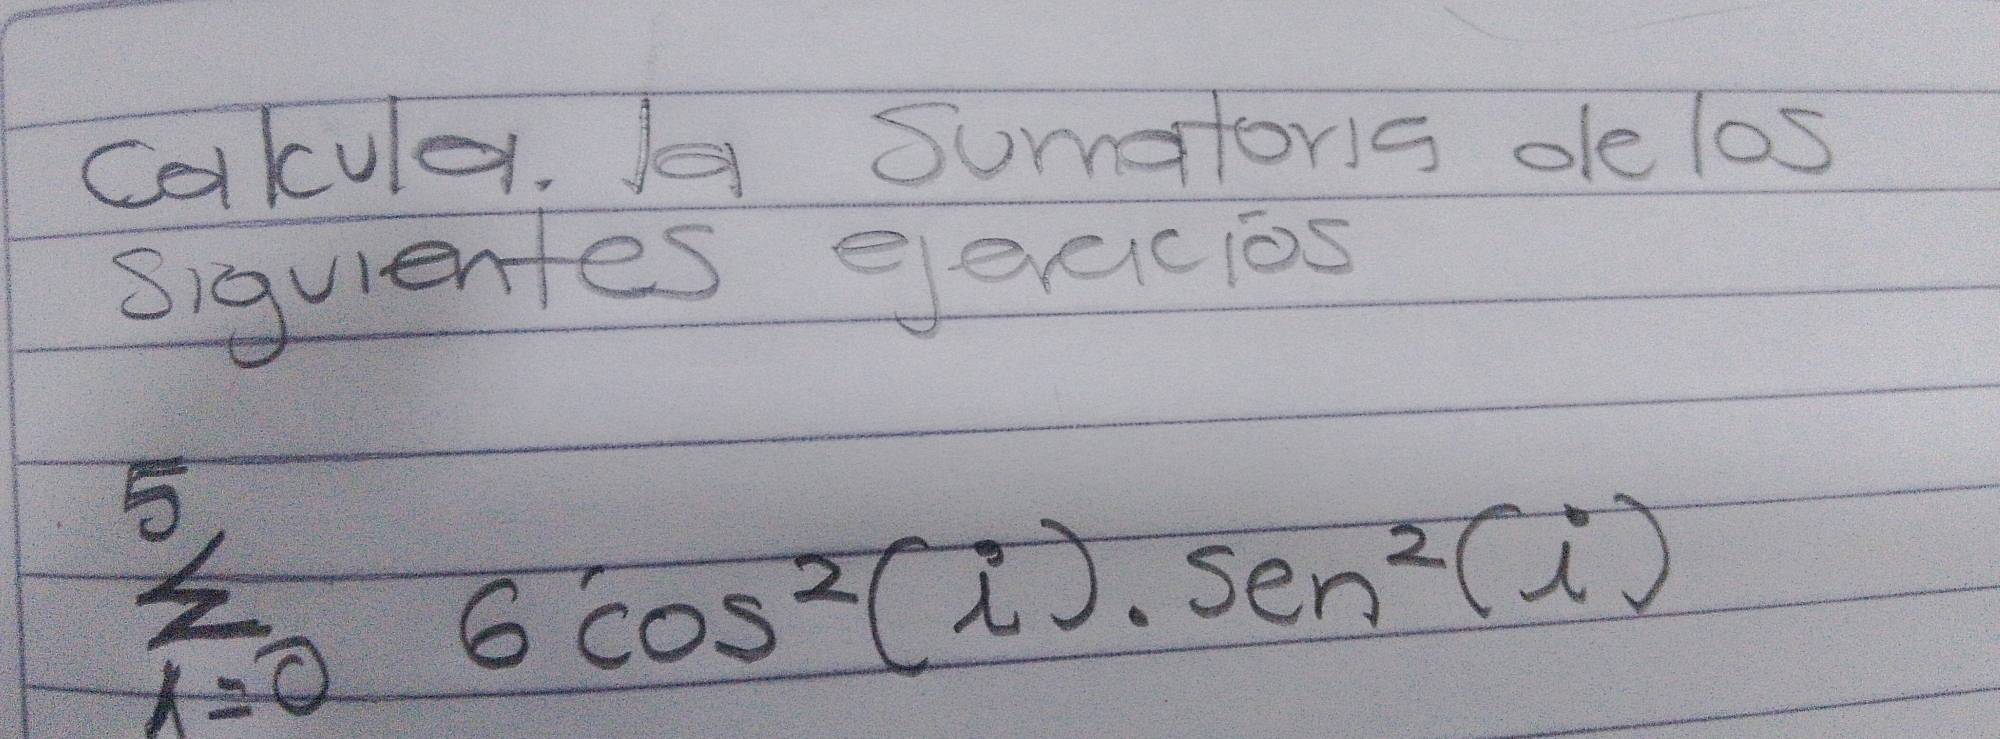 Calcula. la Sumatoria de los
siguientes ejercicios
5
Σ 6 cos²(i). sen²(i)
i=0